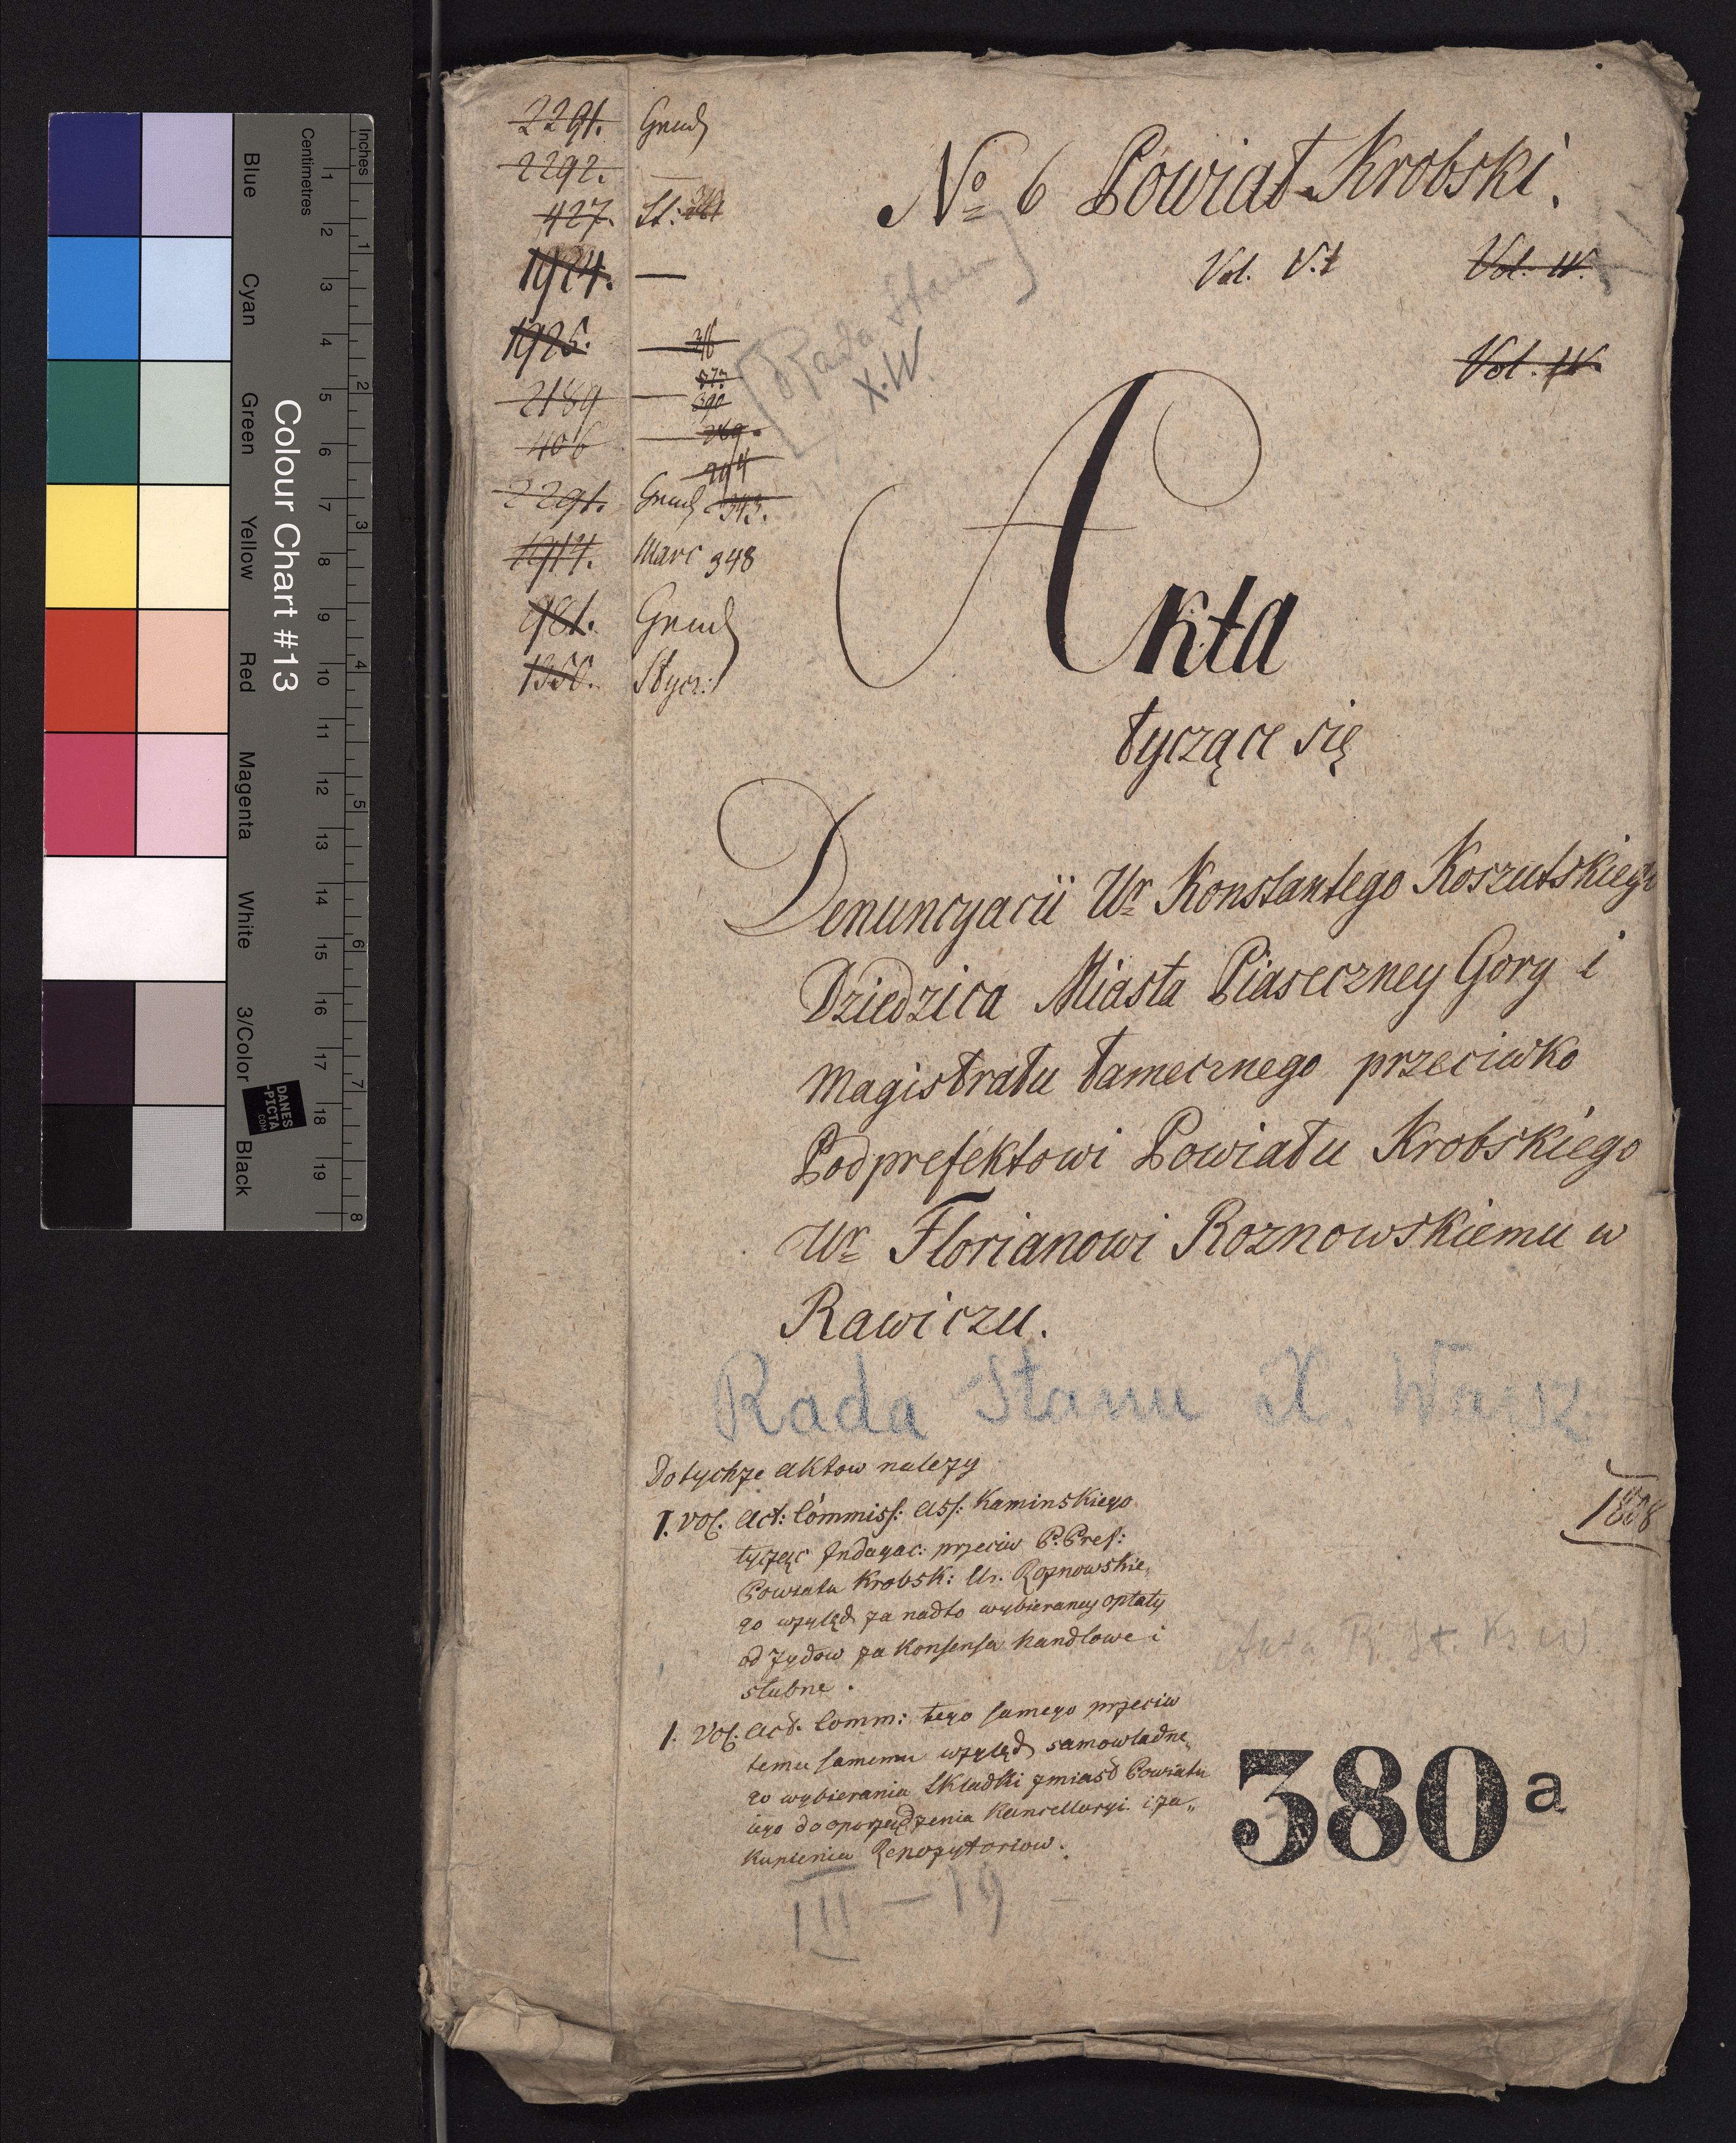 Colour Chart #13
Blue Cyan Green Yellow Red Magenta White 3/Color Black
Inches
Centimetres
1 2 3 4 5 6 7 8 9 10 11 12 13 14 15 16 17 18 19
1 2 3 4 5 6 7 8
DANES
-PICTA
.COM
2291. Grud
2292. —
427. St:
1924. —
1925. —
2189 —
406 —
2291. Grud 343.
1914. Marc 348
981. Grud
1350. Stycz:
No 6 Powiat Krobski.
Vol. V.1 Vol. IV.
Vol. IV.
[Rada Stanu
X.W.]
Akta
tyczące się
Denuncyacii Ur Konstantego Koszutskiego
Dziedzica Miasta Piaseczney Gory i
Magistratu tamecznego przeciwko
Podprefektowi Powiatu Krobskiego
Ur Florianowi Roznowskiemu w
Rawiczu.
Rada Stanu X. Warsz.
1808
Do tychże aktow należy
1. Vol. Act: Commiss: Ass: Kaminskiego
tycząc Indagac: przeciw P. Pref:
Powiatu Krobsk: Ur. Rożnowskie„
go wzgląd za nadto wybieraney opłaty
od Żydow za Konsensa handlowe i
slubne.
1. Vol. Act. Comm: tego samego przeciw
temu samemu wzgląd samowładne„
go wybierania Składki z miast Powiatu
iego do oporządzenia Kancellaryi i za„
kupienia Repozytoriow.
380 a
III — 19 —